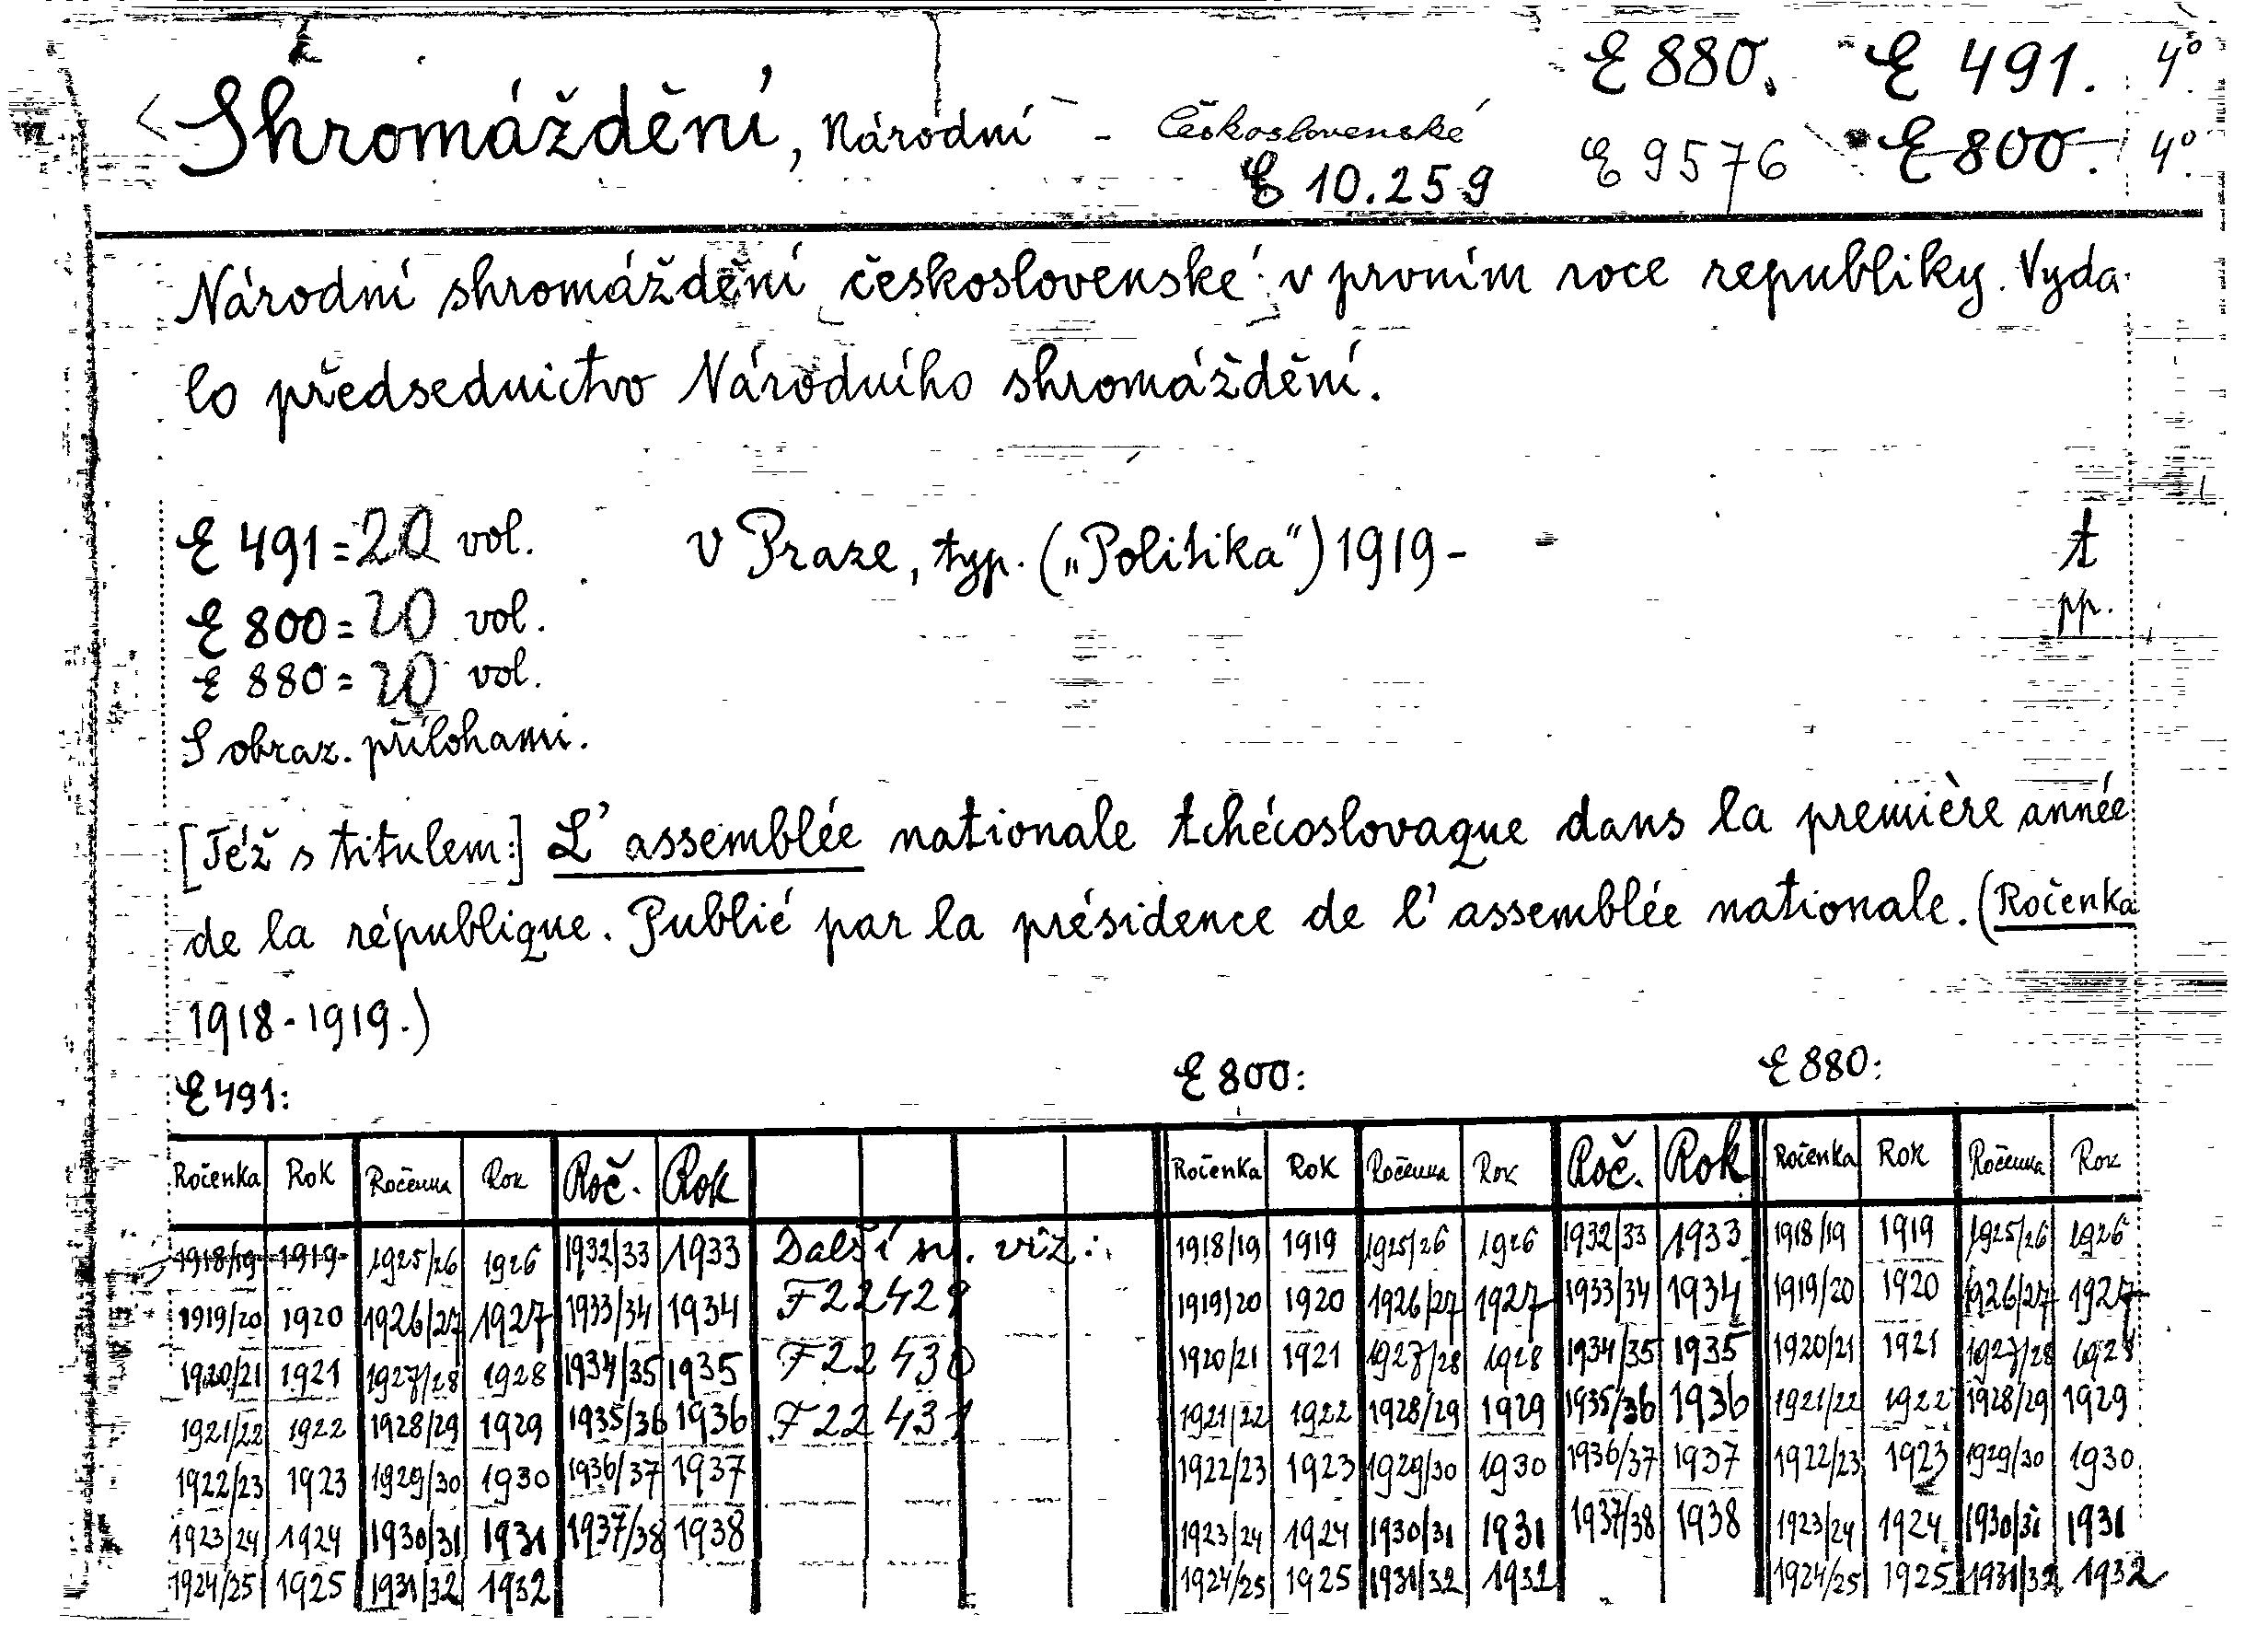 E 880. E 491. 4°
Shromáždění, Národní - Československé
E 9576 E 800. 4°
E 10.259
Národní shromáždění československé v prvním roce republiky. Vyda-
lo předsednictvo Národního shromáždění.
E 491 = 20 vol. v Praze, typ. („Politika“) 1919 -
E 800 = 20 vol.
pp.
E 880 = 20 vol.
S obraz. přílohami.
[Též s titulem:] L'assemblée nationale tchécoslovaque dans la première année
de la république. Publié par la présidence de l'assemblée nationale. (Ročenka
1918-1919.)
E 491: E 800: E 880:
Ročenka Rok Ročenka Rok Roč. Rok Ročenka Rok Ročenka Rok Roč. Rok Ročenka Rok Ročenka Rok
1918/19 1919 1925/26 1926 1932/33 1933 Další sv. viz: 1918/19 1919 1925/26 1926 1932/33 1933 1918/19 1919 1925/26 1926
1919/20 1920 1926/27 1927 1933/34 1934 F 22429 1919/20 1920 1926/27 1927 1933/34 1934 1919/20 1920 1926/27 1927
1920/21 1921 1927/28 1928 1934/35 1935 F 22430 1920/21 1921 1927/28 1928 1934/35 1935 1920/21 1921 1927/28 1928
1921/22 1922 1928/29 1929 1935/36 1936 F 22431 1921/22 1922 1928/29 1929 1935/36 1936 1921/22 1922 1928/29 1929
1922/23 1923 1929/30 1930 1936/37 1937 1922/23 1923 1929/30 1930 1936/37 1937 1922/23 1923 1929/30 1930
1923/24 1924 1930/31 1931 1937/38 1938 1923/24 1924 1930/31 1931 1937/38 1938 1923/24 1924 1930/31 1931
1924/25 1925 1931/32 1932 1924/25 1925 1931/32 1932 1924/25 1925 1931/32 1932